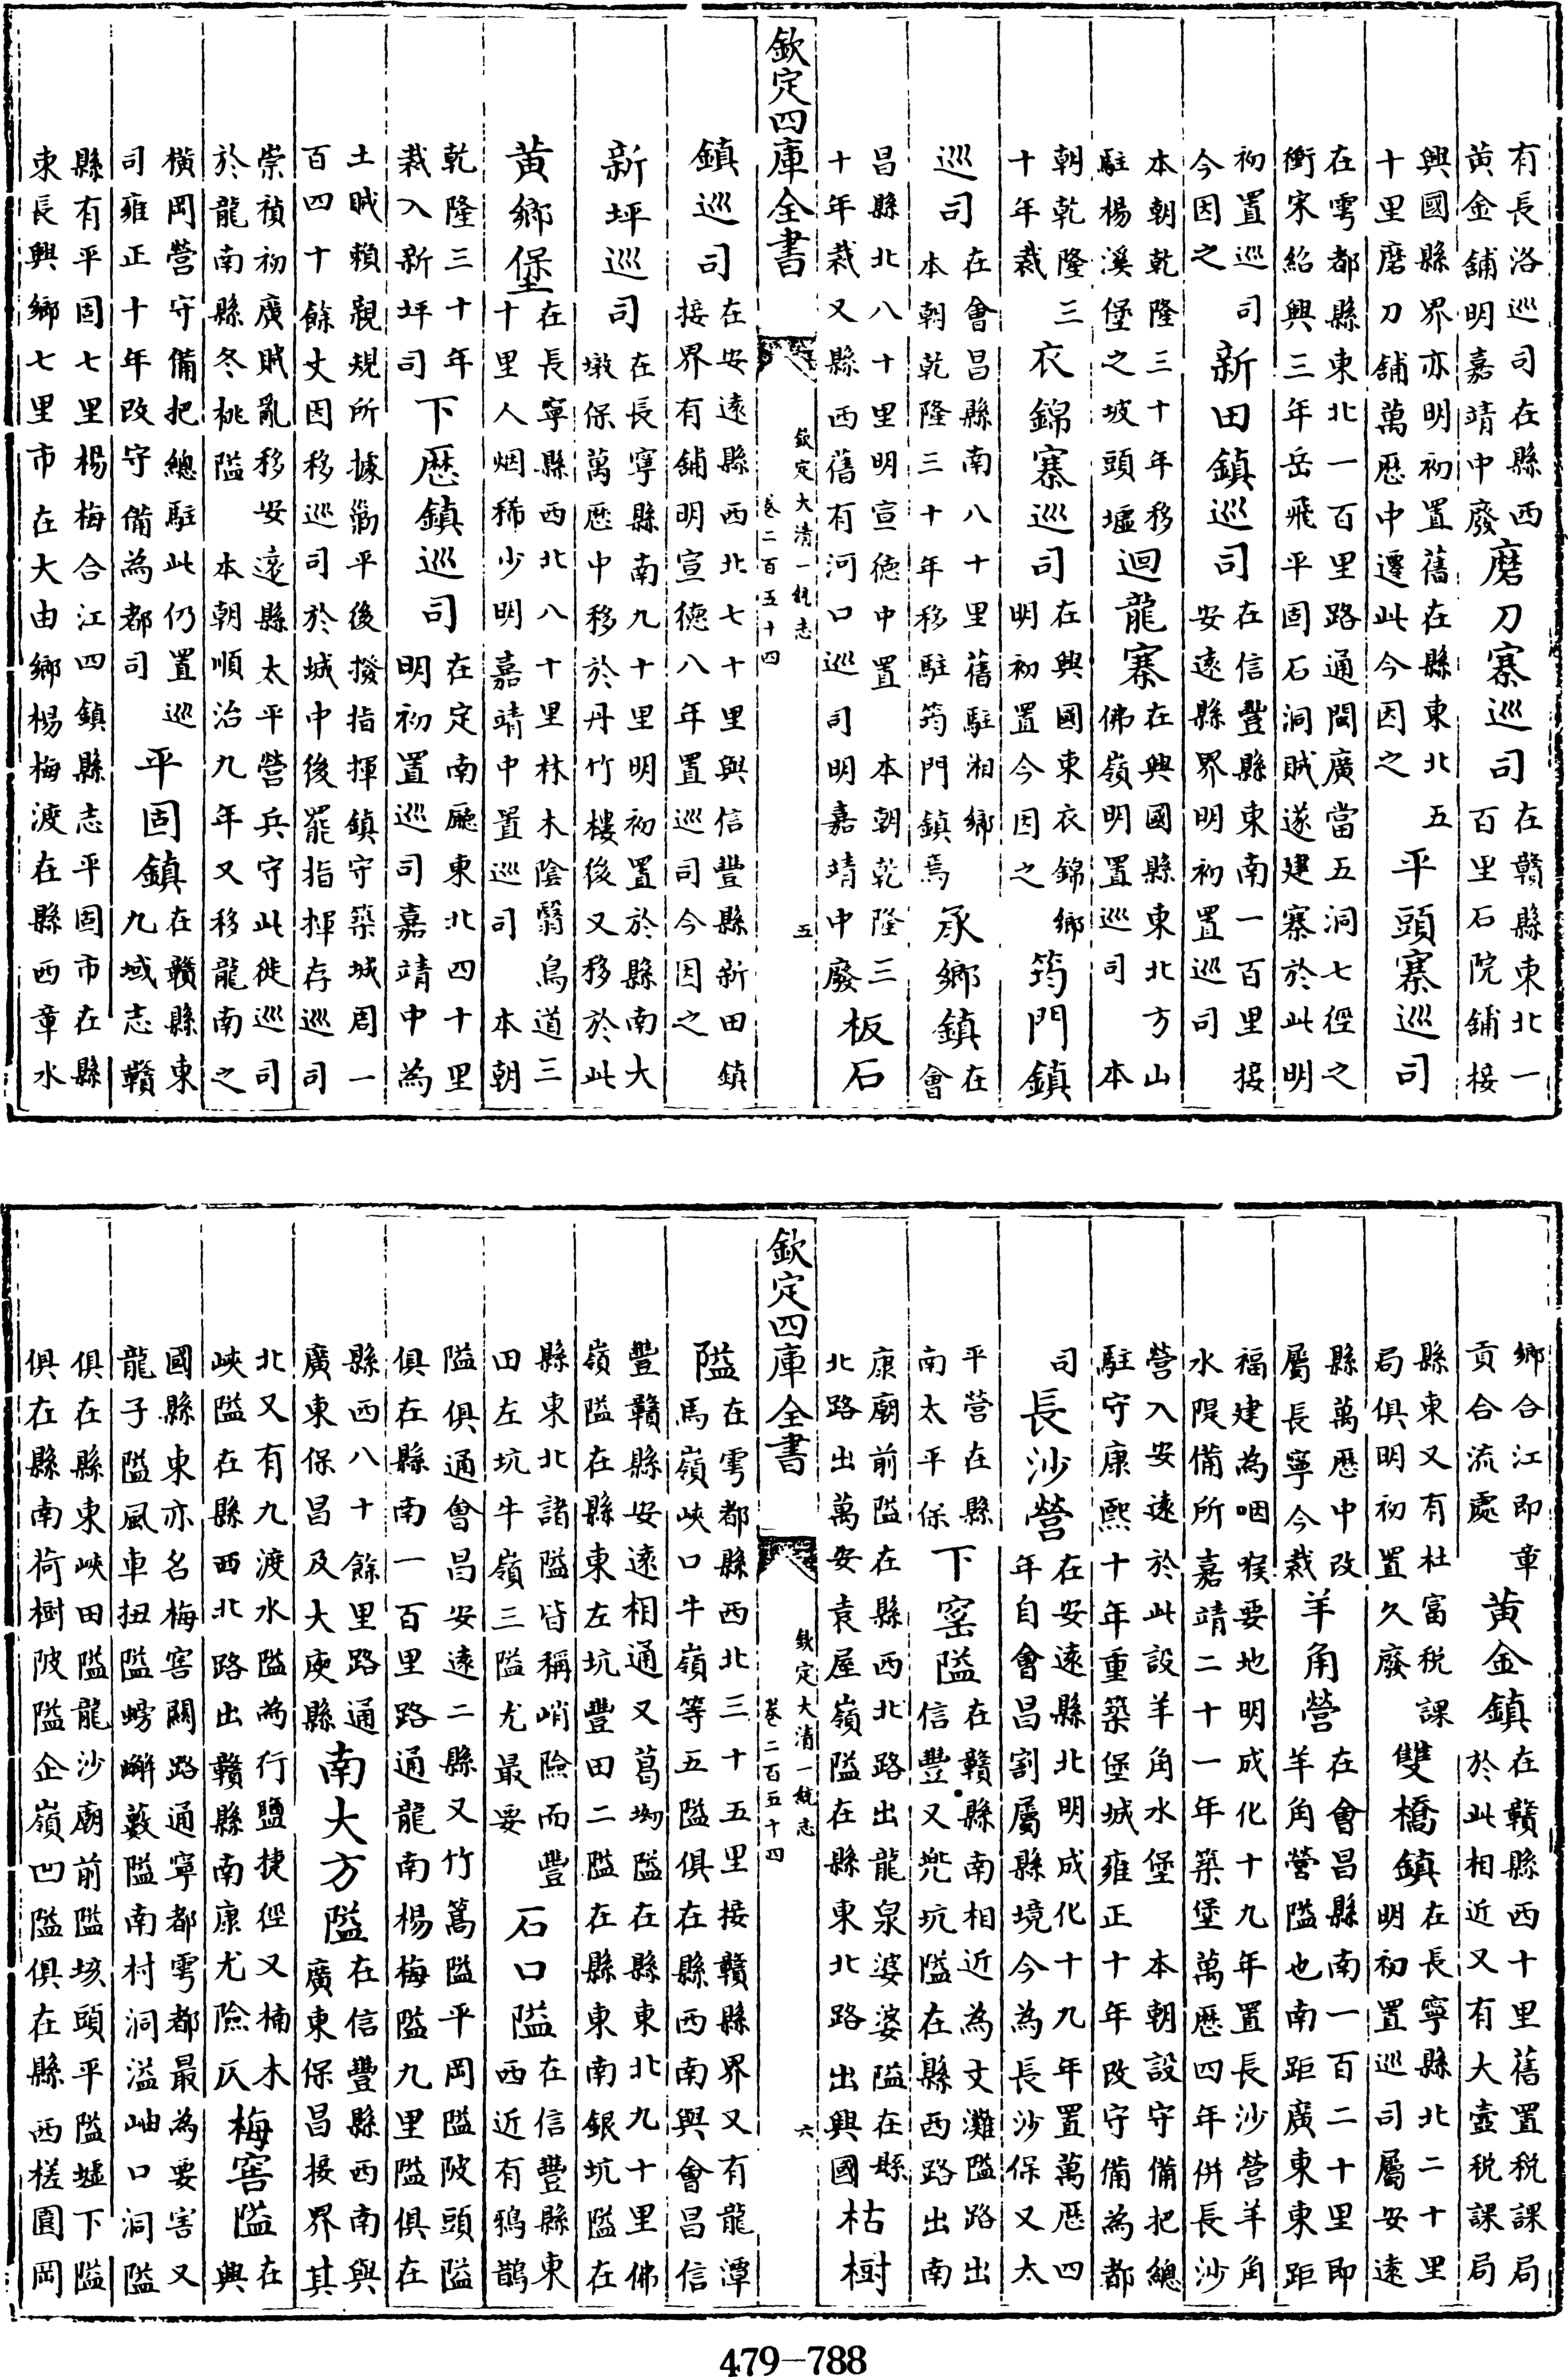 有長洛巡司在縣西
黄金舖明嘉靖中廢
磨刀寨巡司
在贛縣東北一
百里石院舖接
興國縣界亦明初置舊在縣東北五
十里磨刀舖萬厯中遷此今因之
平頭寨巡司
在雩都縣東北一百里路通閩廣當五洞七徑之
衝宋紹興三年岳飛平固石洞賊遂建寨於此明
初置巡司
今因之
新田鎮巡司
在信豐縣東南一百里接
安逺縣界明初置巡司
本朝乾隆三十年移
駐楊溪堡之坡頭墟
迴龍寨
在興國縣東北方山
佛嶺明置巡司 本
朝乾隆三
十年裁
衣錦寨巡司
在興國東衣錦鄉
明初置今因之
筠門鎮
巡司
在會昌縣南八十里舊駐湘鄉
本朝乾隆三十年移駐筠門鎮焉
承鄉鎮
在
會
昌縣北八十里明宣徳中置 本朝乾隆三
十年裁又縣西舊有河口巡司明嘉靖中廢
板石
欽定四庫全書
欽定大清一統志
卷二百五十四
五
鎮巡司
在安逺縣西北七十里與信豐縣新田鎮
接界有舖明宣徳八年置巡司今因之
新坪巡司
在長寧縣南九十里明初置於縣南大
墩保萬厯中移於丹竹樓後又移於此
黄鄉堡
在長寧縣西北八十里林木陰翳鳥道三
十里人烟稀少明嘉靖中置巡司 本朝
乾隆三十年
裁入新坪司
下厯鎮巡司
在定南廳東北四十里
明初置巡司嘉靖中為
土賊賴親規所據勦平後撥指揮鎮守築城周一
百四十餘丈因移巡司於城中後罷指揮存巡司
崇禎初廣賊亂移安逺縣太平營兵守此徙巡司
於龍南縣冬桃隘 本朝順治九年又移龍南之
横岡營守備把總駐此仍置巡
司雍正十年改守備為都司
平固鎮
在贛縣東
九域志贛
縣有平固七里楊梅合江四鎮縣志平固市在縣
東長興鄉七里市在大由鄉楊梅渡在縣西章水
鄉合江即章
貢合流處
黄金鎮
在贛縣西十里舊置税課局
於此相近又有大壺税課局
縣東又有杜富税課
局俱明初置久廢
雙橋鎮
在長寧縣北二十里
明初置巡司屬安逺
縣萬厯中改
屬長寧今裁
羊角營
在會昌縣南一百二十里即
羊角營隘也南距廣東東距
福建為咽喉要地明成化十九年置長沙營羊角
水隄備所嘉靖二十一年築堡萬厯四年併長沙
營入安逺於此設羊角水堡 本朝設守備把總
駐守康熙十年重築堡城雍正十年改守備為都
司
長沙營
在安逺縣北明成化十九年置萬厯四
年自會昌割屬縣境今為長沙保又太
平營在縣
南太平保
下窰隘
在贛縣南相近為丈灘隘路出
信豐又兠坑隘在縣西路出南
康廟前隘在縣西北路出龍泉婆婆隘在縣
北路出萬安袁屋嶺隘在縣東北路出興國
枯樹
欽定四庫全書
欽定大清一統志
卷二百五十四
六
隘
在雩都縣西北三十五里接贛縣界又有龍潭
馬嶺峽口牛嶺等五隘俱在縣西南與會昌信
豐贛縣安逺相通又葛坳隘在縣東北九十里佛
嶺隘在縣東左坑豐田二隘在縣東南銀坑隘在
縣東北諸隘皆稱峭險而豐
田左坑牛嶺三隘尤最要
石口隘
在信豐縣東
西近有鴉鵲
隘俱通會昌安逺二縣又竹篙隘平岡隘陂頭隘
俱在縣南一百里路通龍南楊梅隘九里隘俱在
縣西八十餘里路通
廣東保昌及大庾縣
南大方隘
在信豐縣西南與
廣東保昌接界其
北又有九渡水隘為行鹽捷徑又楠木
峽隘在縣西北路出贛縣南康尤險仄
梅窖隘
在
興
國縣東亦名梅窖闗路通寧都雩都最為要害又
龍子隘風車扭隘螃蠏藪隘南村洞溢岫口洞隘
俱在縣東峽田隘龍沙廟前隘垓頭平隘墟下隘
俱在縣南荷樹陂隘企嶺凹隘俱在縣西槎園岡
479—788